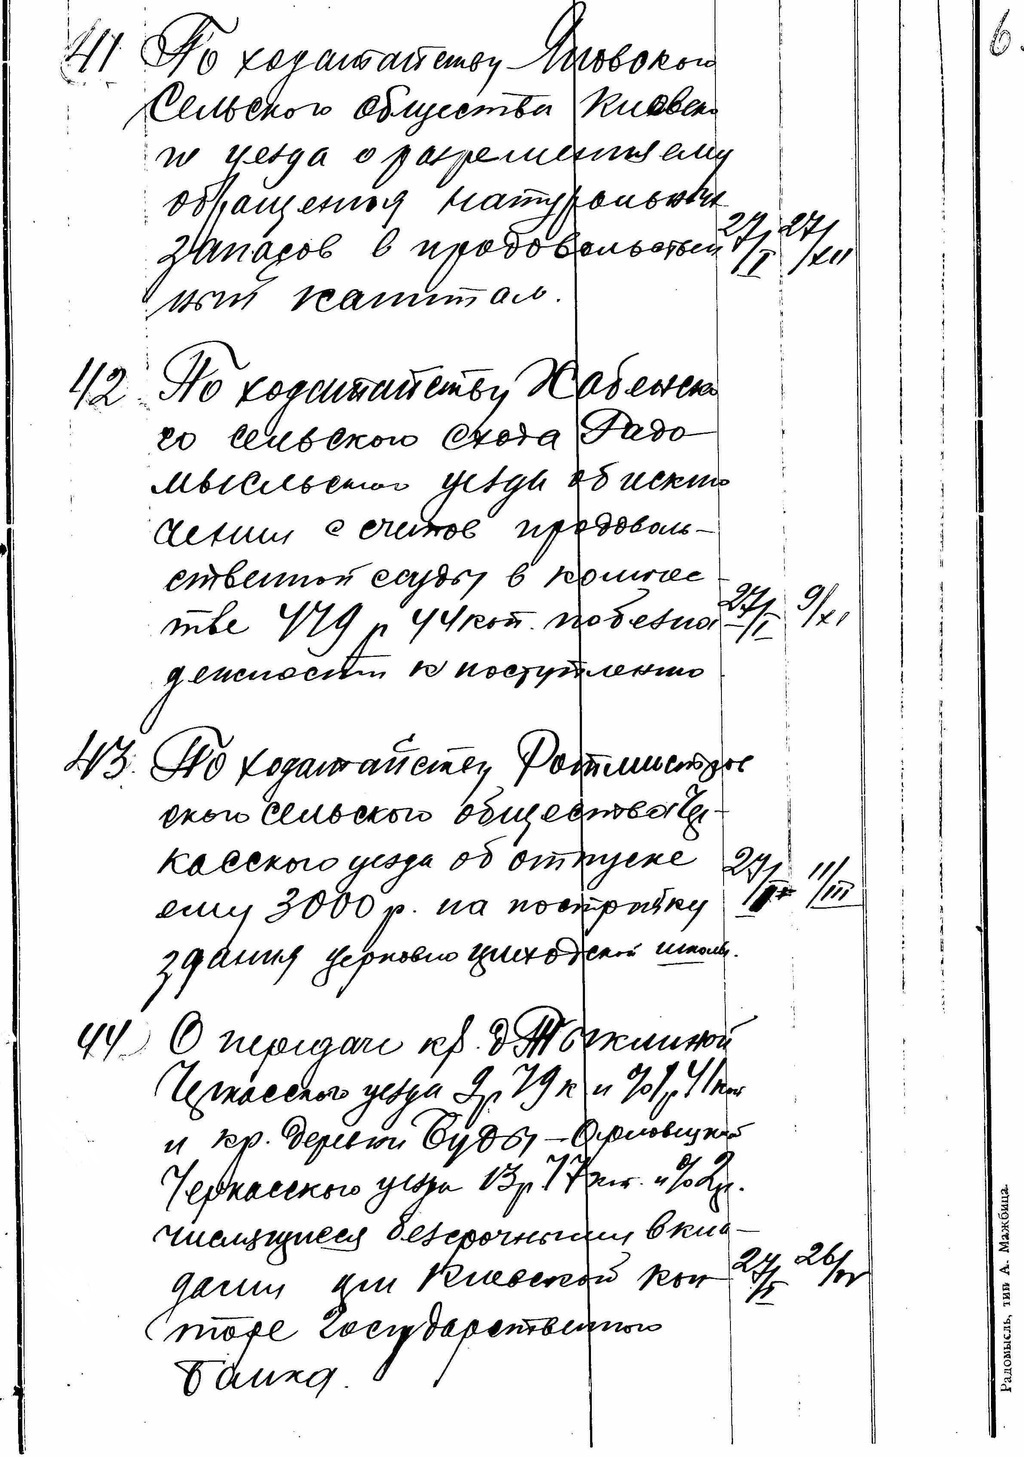 6.
41 По ходатайству Яновского
Сельского общества Киевско
го уезда о разрешении ему
обращения натуральных
запасов в продовольствен
ный капитал.
27/I 27/XII
42 По ходатайству Хабенско
го сельского схода Радо
мысльского уезда об исклю
чении с счетов продоволь-
ственной ссуды в количес-
тве 479 р 44 коп. по безна
дежности к поступлению
27/I 9/XI
43. По ходатайству Ротмистров
ского сельского общества Чер-
касского уезда об отпуске
ему 3000 р. на постройку
здания церковно приходской школы.
27/I 11/III
44 О передаче кр. д
Черкасского уезда 9р 79 к и % 1р 41 коп
и кр. деревни Буды-Орловецкой
Черкасского уезда 13 р. 77 коп. и % 2р.
числящиеся безсрочными вкла-
дами при Киевской кон-
торе Государственного
Банка.
27/I 26/IV
Радомысль, тип А. Мажбица.